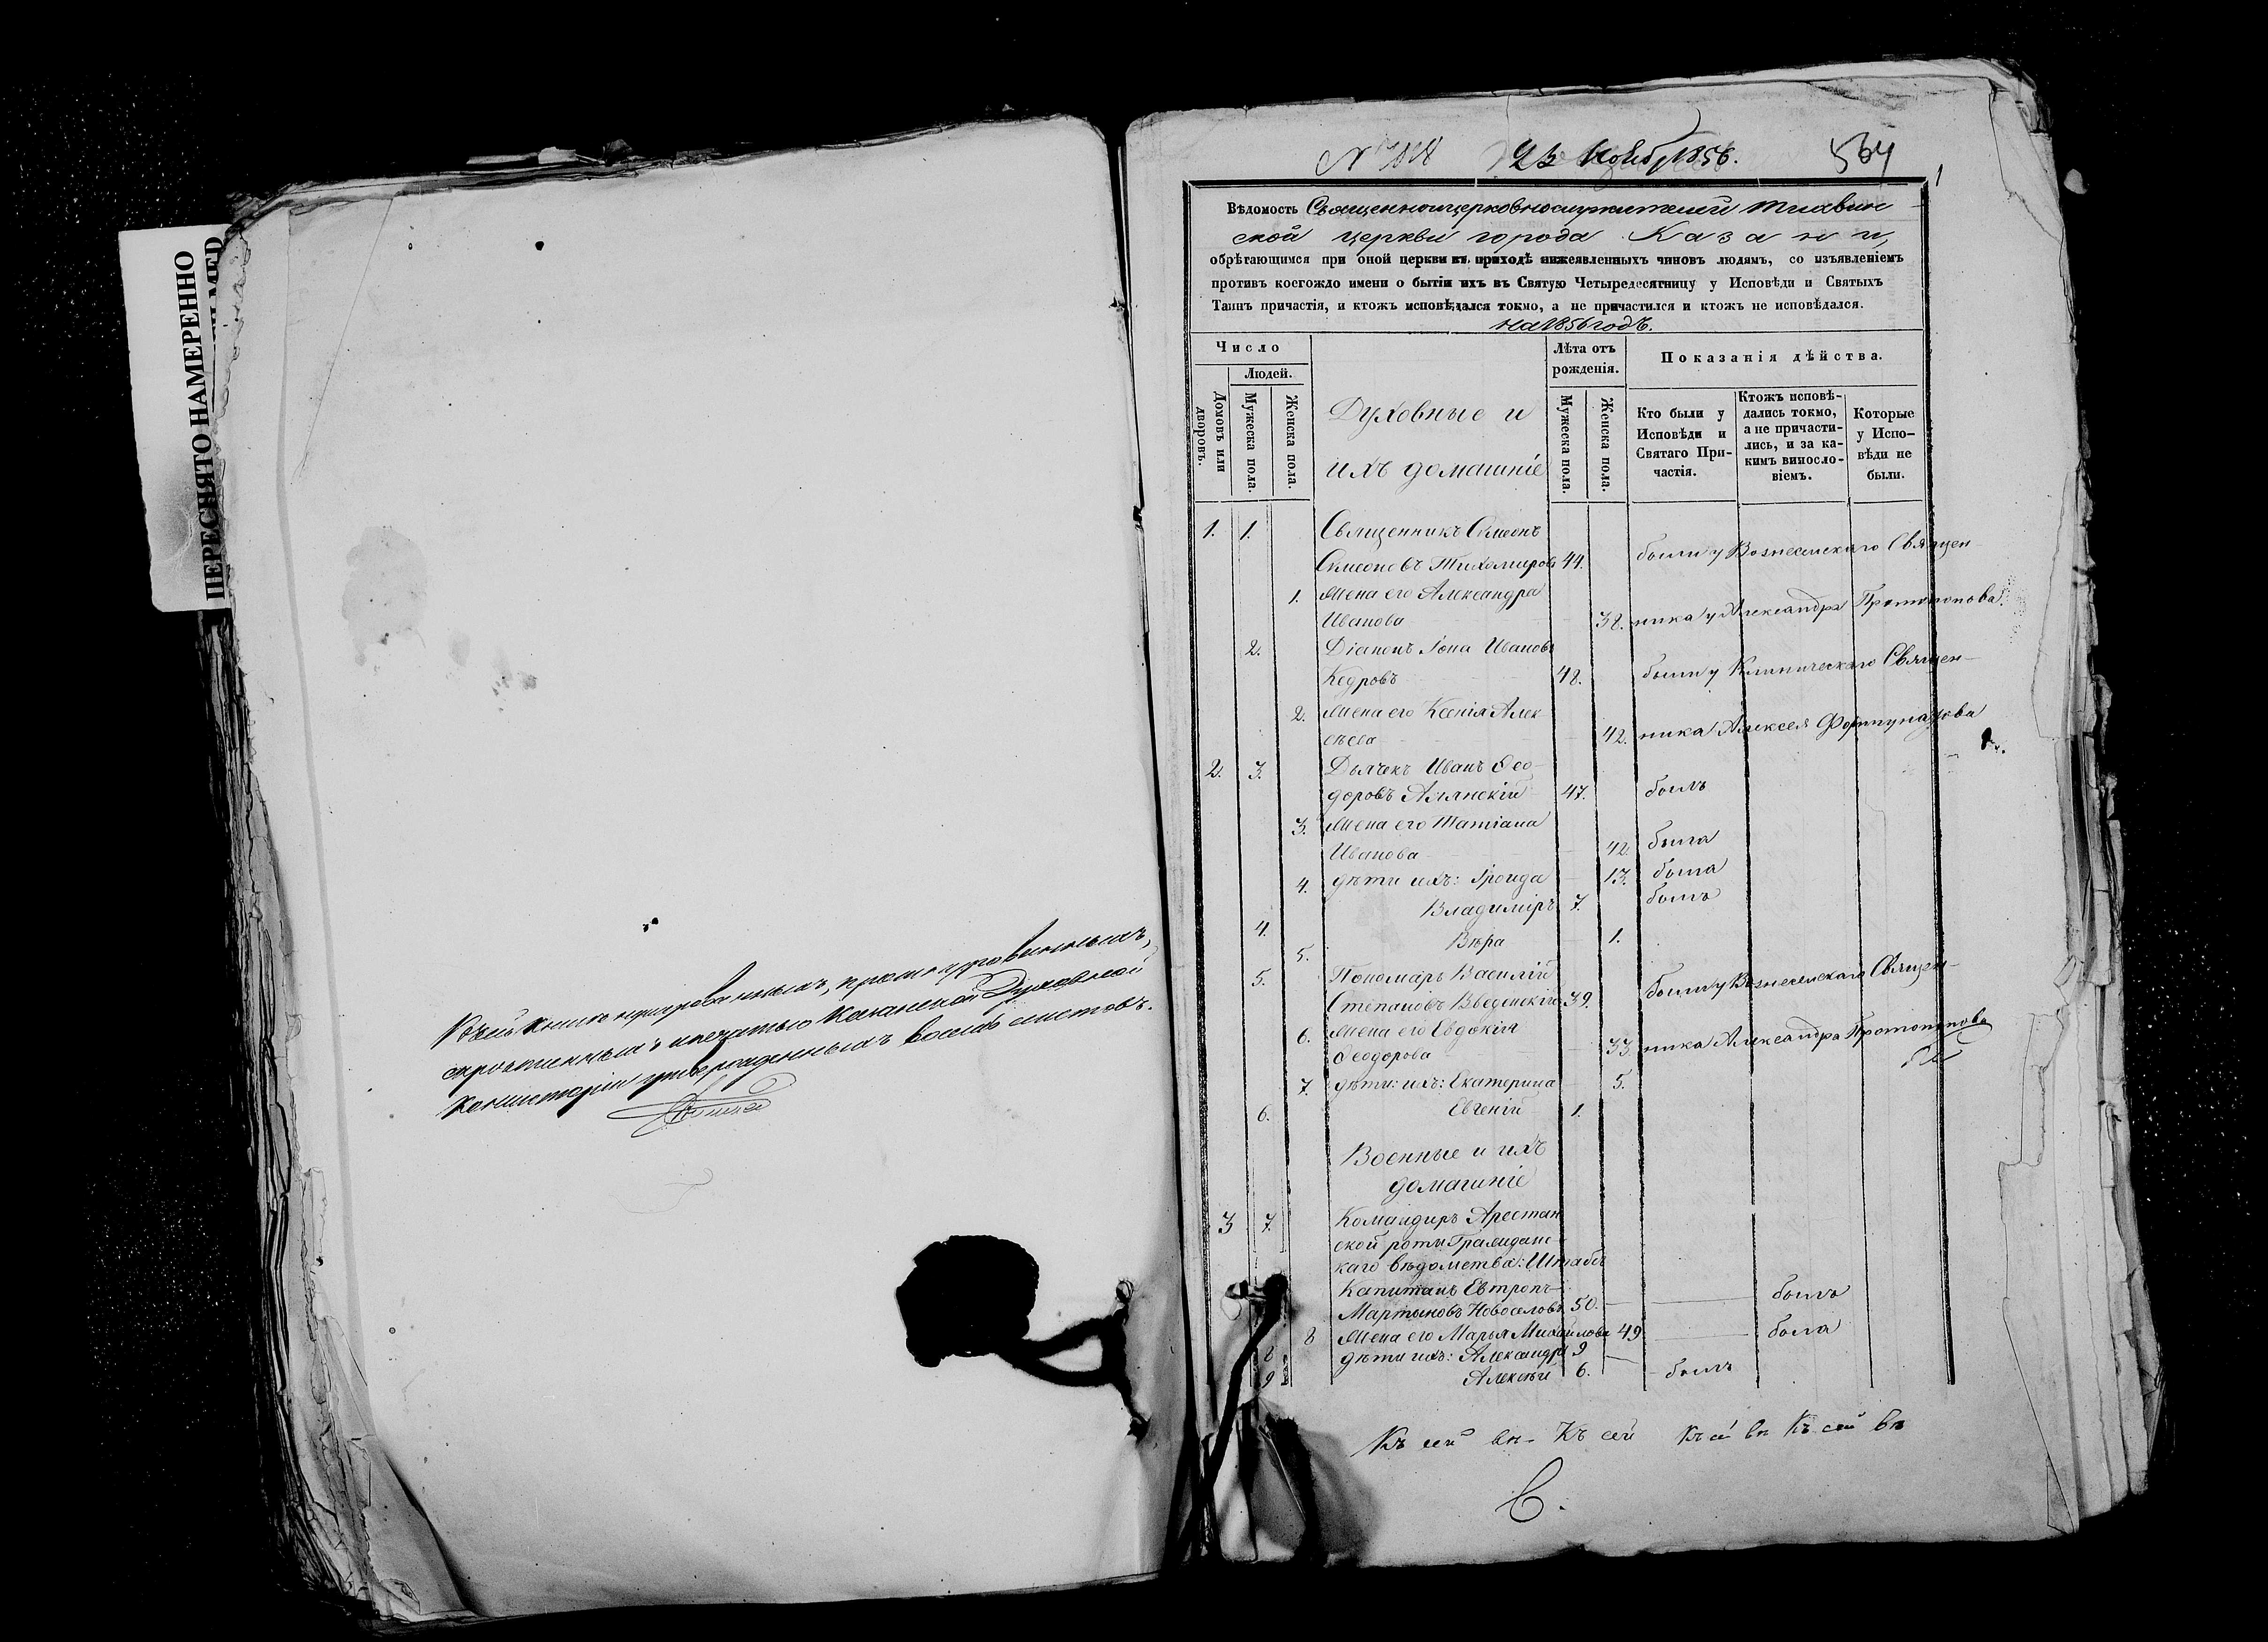 ПЕРЕСНЯТО НАМЕРЕННО
Въ сей книге нумерованныхъ, прошнурованныхъ,
скрепленныхъ и печатью Казанской Духовной
Консисторіи утвержденныхъ восемь листовъ.
23 Нояб. 1856. 564
1
Вѣдомость Священноицерковнослужителей Тихвин-
ской церкви города Казани,
обрѣтающимся при оной церкви въ приходѣ нижеявленныхъ чиновъ людямъ, со изъявленіемъ
противъ коегождо имени о бытіи ихъ въ Святую Четыредесятницу у Исповѣди и Святыхъ
Таинъ причастія, и ктожъ исповѣдался токмо, а не причастился и ктожъ не исповѣдался.
на 1856 годъ.
Число
Людей.
Домовъ или дворовъ.
Мужеска пола.
Женска пола.
Духовные и
ихъ домашніе
Лѣта отъ
рожденія.
Мужеска пола.
Женска пола.
Показанія дѣйства.
Кто были у
Исповѣди и
Святаго При-
частія.
Ктожъ исповѣ-
дались токмо,
а не причасти-
лись, и за ка-
кимъ виносло-
віемъ.
Которые
у Испо-
вѣди не
были.
1. 1. Священникъ Симеонъ
Симеоновъ Тихомировъ 44. были у Вознесенскаго Священ-
1. Жена его Александра
Иванова 38. ника у Александра Протопопова.
2. Діаконъ Іона Ивановъ
Кедровъ 48. были у Клиническаго Священ-
2. Жена его Ксенія Алек-
сѣева 42. ника Алексея Фортунатова
2. 3. Дьячекъ Иванъ Ѳео-
доровъ Аллнскій 47. былъ
3. Жена его Татіана
Иванова 42 была
4. дѣти ихъ: Іроида 13. была
4. Владиміръ 7. былъ
5. Вѣра 1.
5. Пономарь Василій
Степановъ Введенскій 39. были у Вознесенскаго Священ-
6. Жена его Евдокія
Ѳеодорова 33 ника Александра Протопопова
7. дѣти: ихъ: Екатерина 5.
6. Евгеній 1.
Военные и ихъ
домашніе
3 7. Командиръ Арестан
ской роты Гражданс-
каго вѣдомства: Штабсъ
Капитанъ Евтропъ
Мартыновъ Новоселовъ 50. былъ
8 Жена его Марья Михайлова 49 была
8 дѣти ихъ: Александръ 9
9 Алексѣй 6. былъ
Къ сей вѣ- Къ сей Къ се вѣ Къ сей вѣ
С.